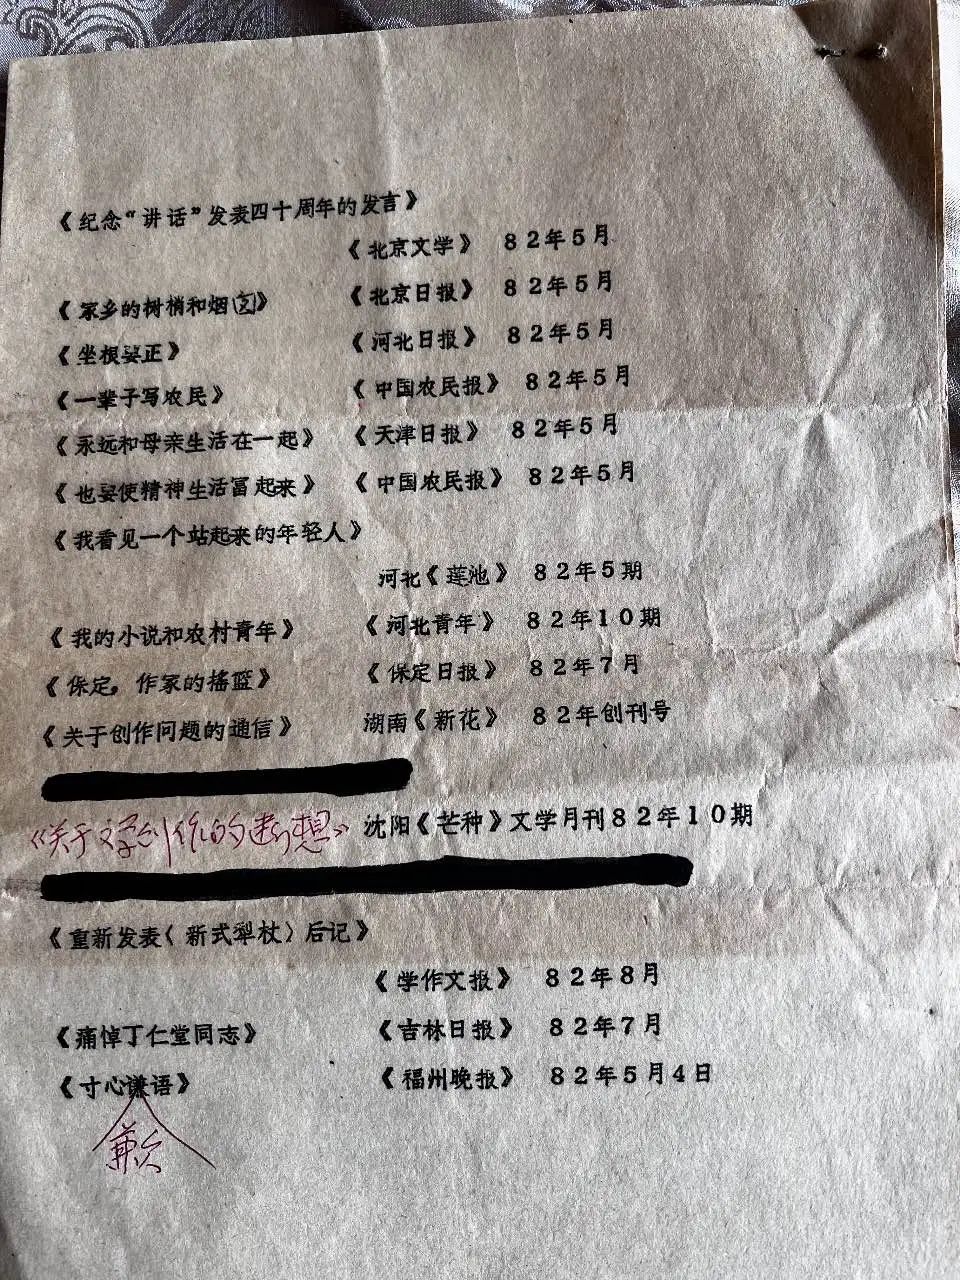 《纪念“讲话”发表四十周年的发言》
《北京文学》 82年5月
《家乡的树梢和烟囱》 《北京日报》 82年5月
《坐根娶正》 《河北日报》 82年5月
《一辈子写农民》 《中国农民报》 82年5月
《永远和母亲生活在一起》 《天津日报》 82年5月
《也要使精神生活富起来》 《中国农民报》 82年5月
《我看见一个站起来的年轻人》
河北《莲池》 82年5期
《我的小说和农村青年》 《河北青年》 82年10期
《保定，作家的摇篮》 《保定日报》 82年7月
《关于创作问题的通信》 湖南《新花》 82年创刊号
《关于文学创作的断想》 沈阳《芒种》文学月刊82年10期
《重新发表〈新式犁杖〉后记》
《学作文报》 82年8月
《痛悼丁仁堂同志》 《吉林日报》 82年7月
《寸心谦语》 《福州晚报》 82年5月4日
歉